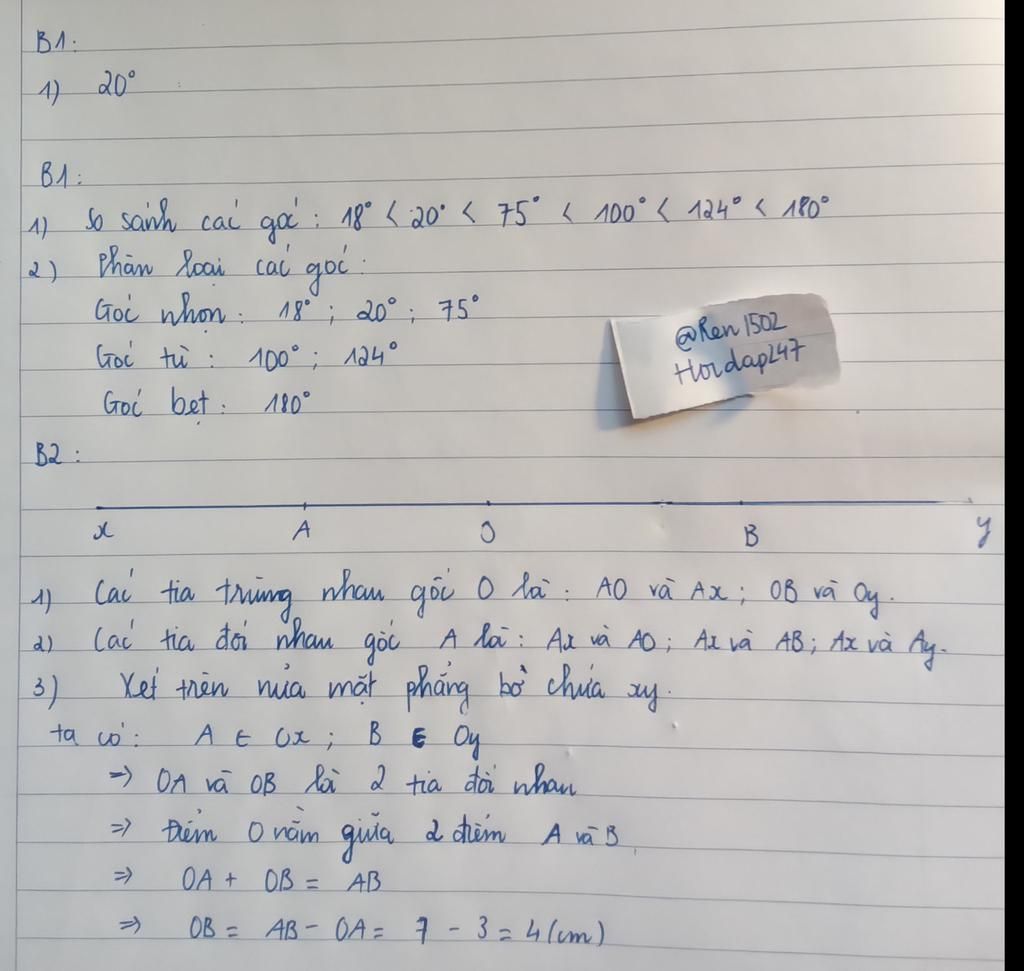 B1:
1) 20°
B1:
1) So sánh các góc: 18° < 20° < 75° < 100° < 124° < 180°
2) Phân loại các góc:
Góc nhọn: 18°; 20°; 75°
Góc tù: 100°; 124°
Góc bẹt: 180°
@Ren1502
Hoidap247
B2:
x A O B y
1) Các tia trùng nhau gốc O là: AO và Ax; OB và Oy.
2) Các tia đối nhau gốc A là: Ax và AO; Ax và AB; Ax và Ay.
3) Xét trên nửa mặt phẳng bờ chứa xy.
ta có: A ∈ Ox; B ∈ Oy
=> OA và OB là 2 tia đối nhau
=> Điểm O nằm giữa 2 điểm A và B
=> OA + OB = AB
=> OB = AB - OA = 7 - 3 = 4 (cm)